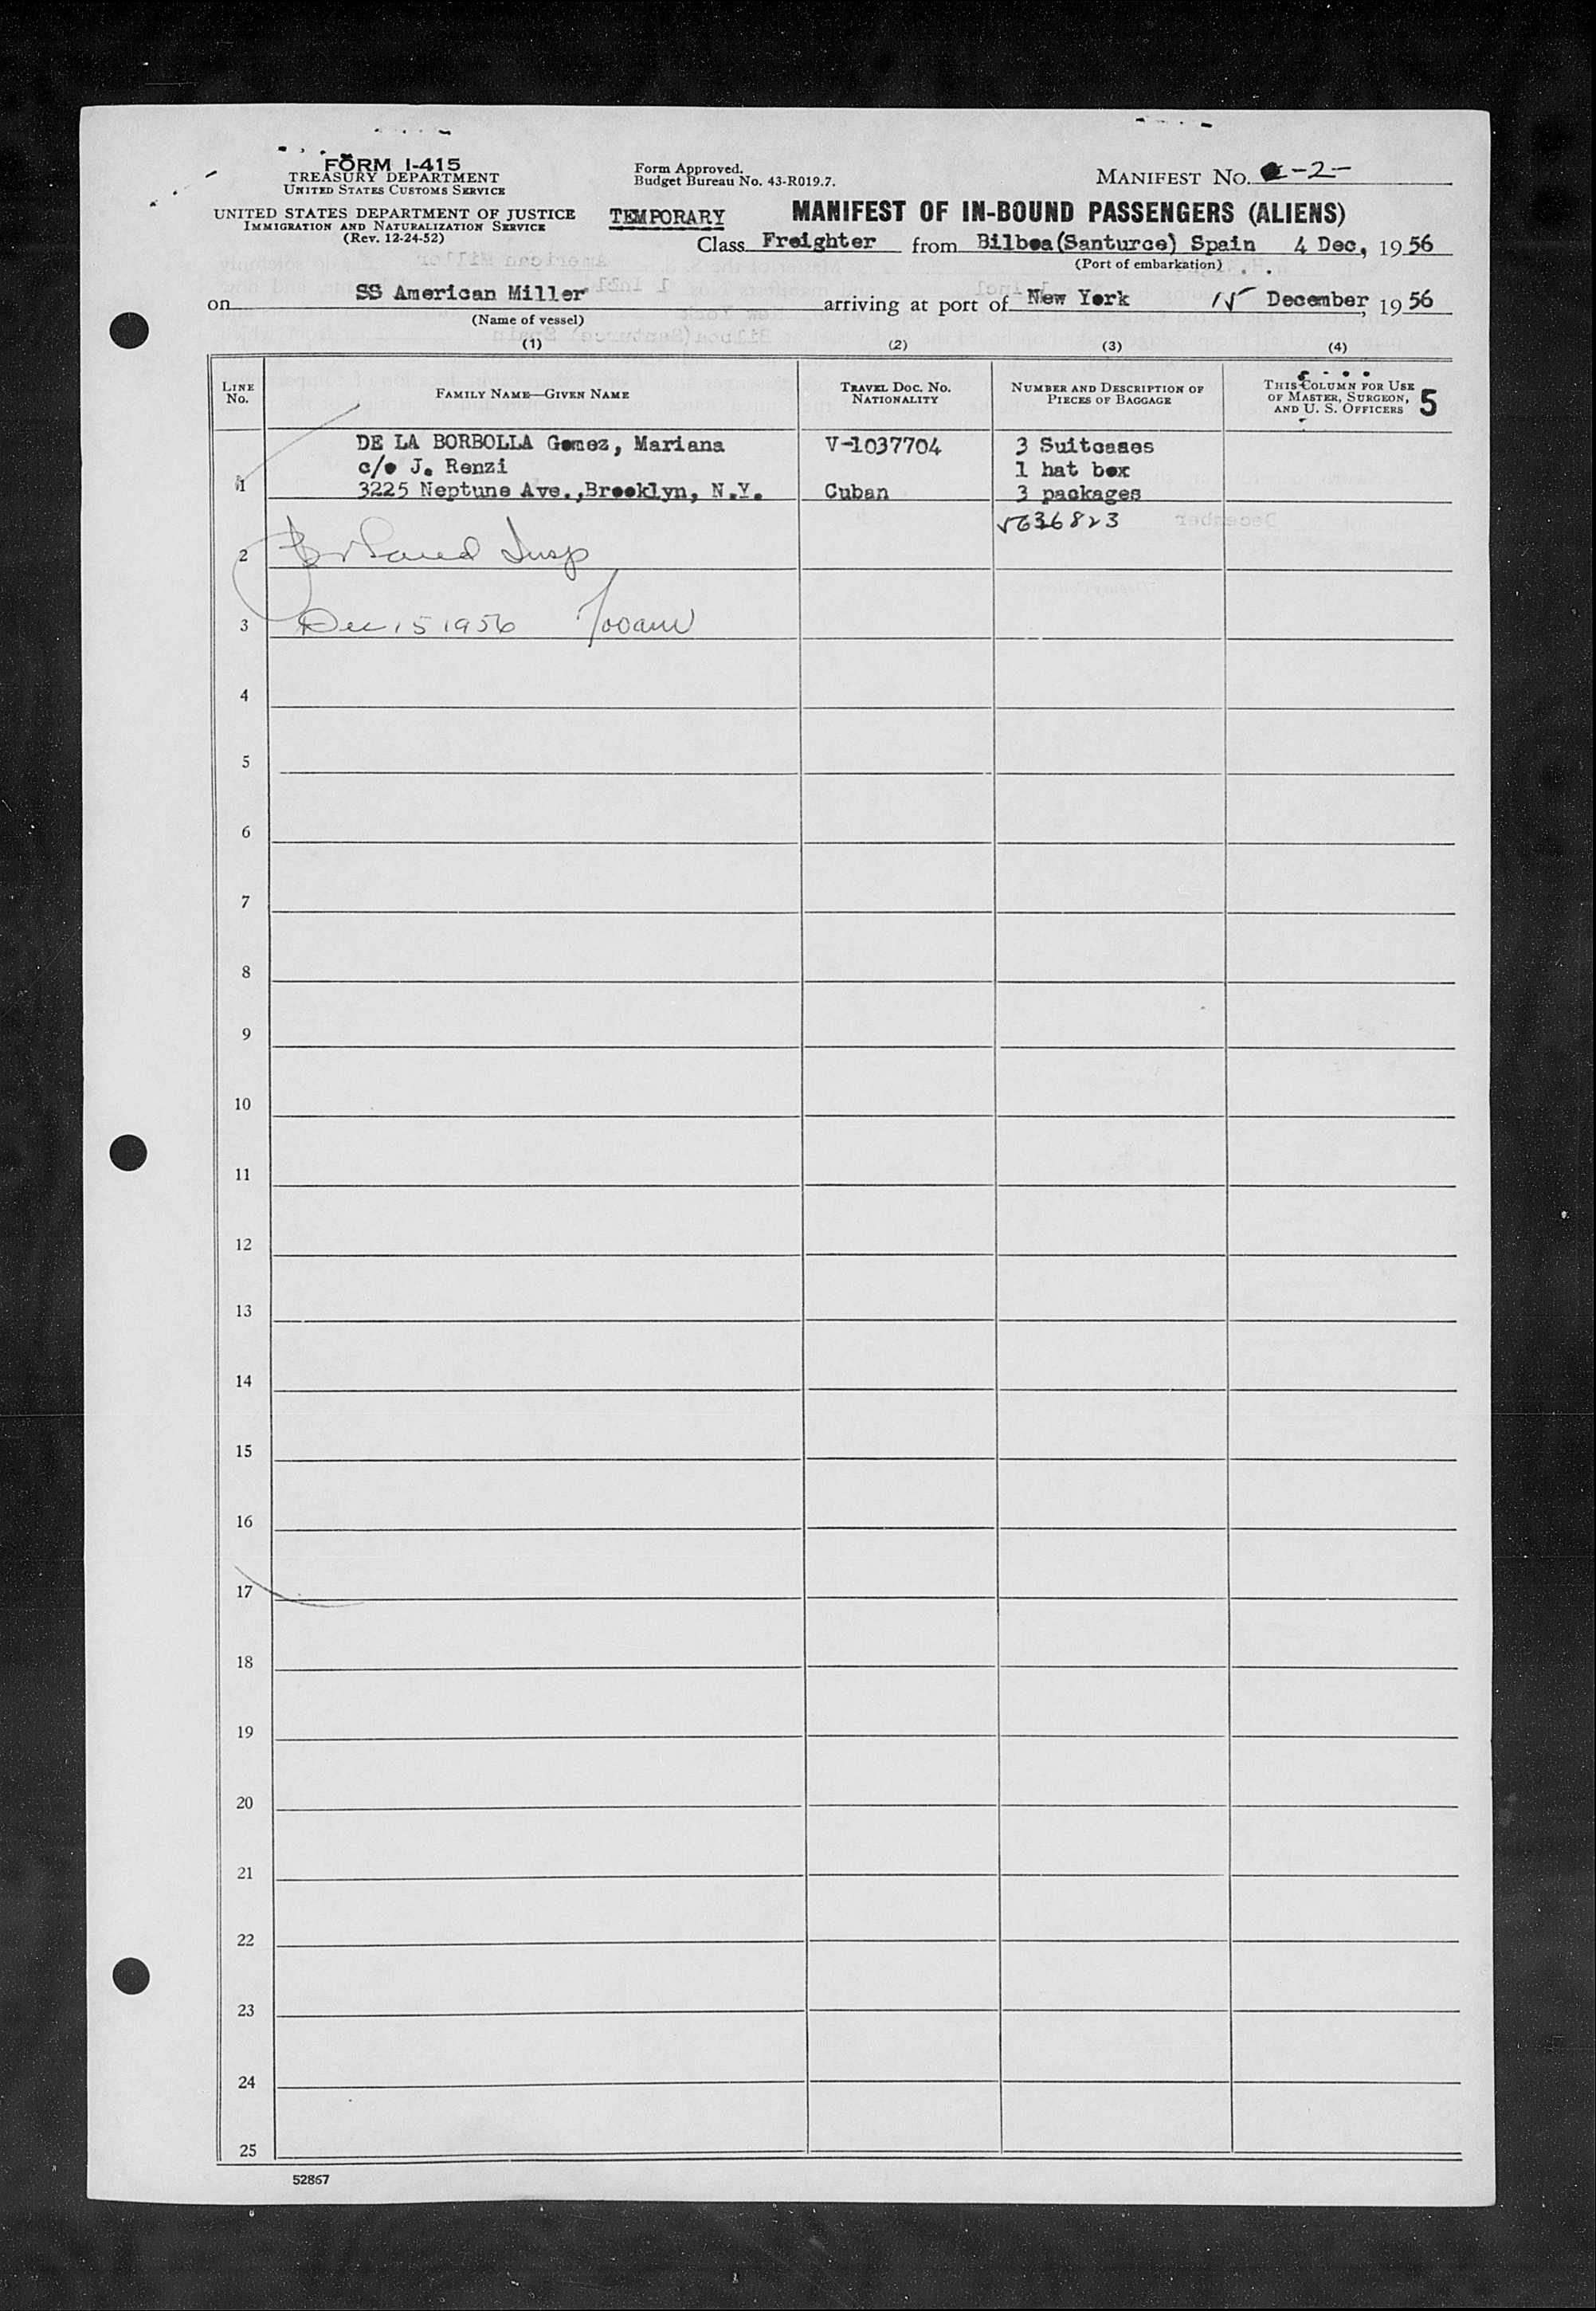 FORM I-415
TREASURY DEPARTMENT
UNITED STATES CUSTOMS SERVICE
UNITED STATES DEPARTMENT OF JUSTICE
IMMIGRATION AND NATURALIZATION SERVICE
(Rev. 12-24-52)
Form Approved.
Budget Bureau No. 43-R019.7.
MANIFEST NO. -2-
TEMPORARY MANIFEST OF IN-BOUND PASSENGERS (ALIENS)
Class Freighter from Bilboa(Santurce) Spain 4 Dec, 1956
(Port of embarkation)
on SS American Miller arriving at port of New York 15 December, 1956
(Name of vessel)
(1) (2) (3) (4)
LINE NO. FAMILY NAME—GIVEN NAME TRAVEL DOC. NO. NATIONALITY NUMBER AND DESCRIPTION OF PIECES OF BAGGAGE THIS COLUMN FOR USE OF MASTER, SURGEON, AND U. S. OFFICERS 5
DE LA BORBOLLA Gomez, Mariana V-1037704 3 Suitcases
c/o J. Renzi 1 hat box
1 3225 Neptune Ave.,Brooklyn, N.Y. Cuban 3 packages
5636823
2 Insp
3 Dec 15 1956 700am
4
5
6
7
8
9
10
11
12
13
14
15
16
17
18
19
20
21
22
23
24
25
52867